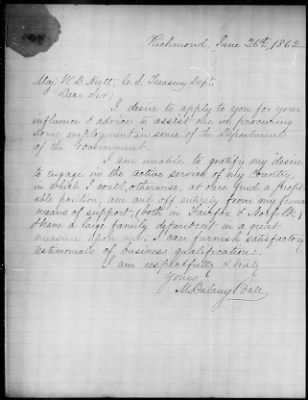 Richmond, June 26th, 1862
Maj W. D. Nutt, C. S. Treasury Dept.
Dear Sir;
I desire to apply to you for your
influence & advice to assist me in procuring
some employment in some of the Departments
of the Government.
I am unable to gratify my desire
to engage in the active service of my Country,
in which I could, otherwise, at once find a
able position, am cut off entirely from my former
means of support, (both in Fairfax & Norfolk)
& have a large family dependent in a great
measure upon me. I can furnish satisfactory
testimonials of business qualification:
I am respectfully & truly
Yours
M. Dulany Ball